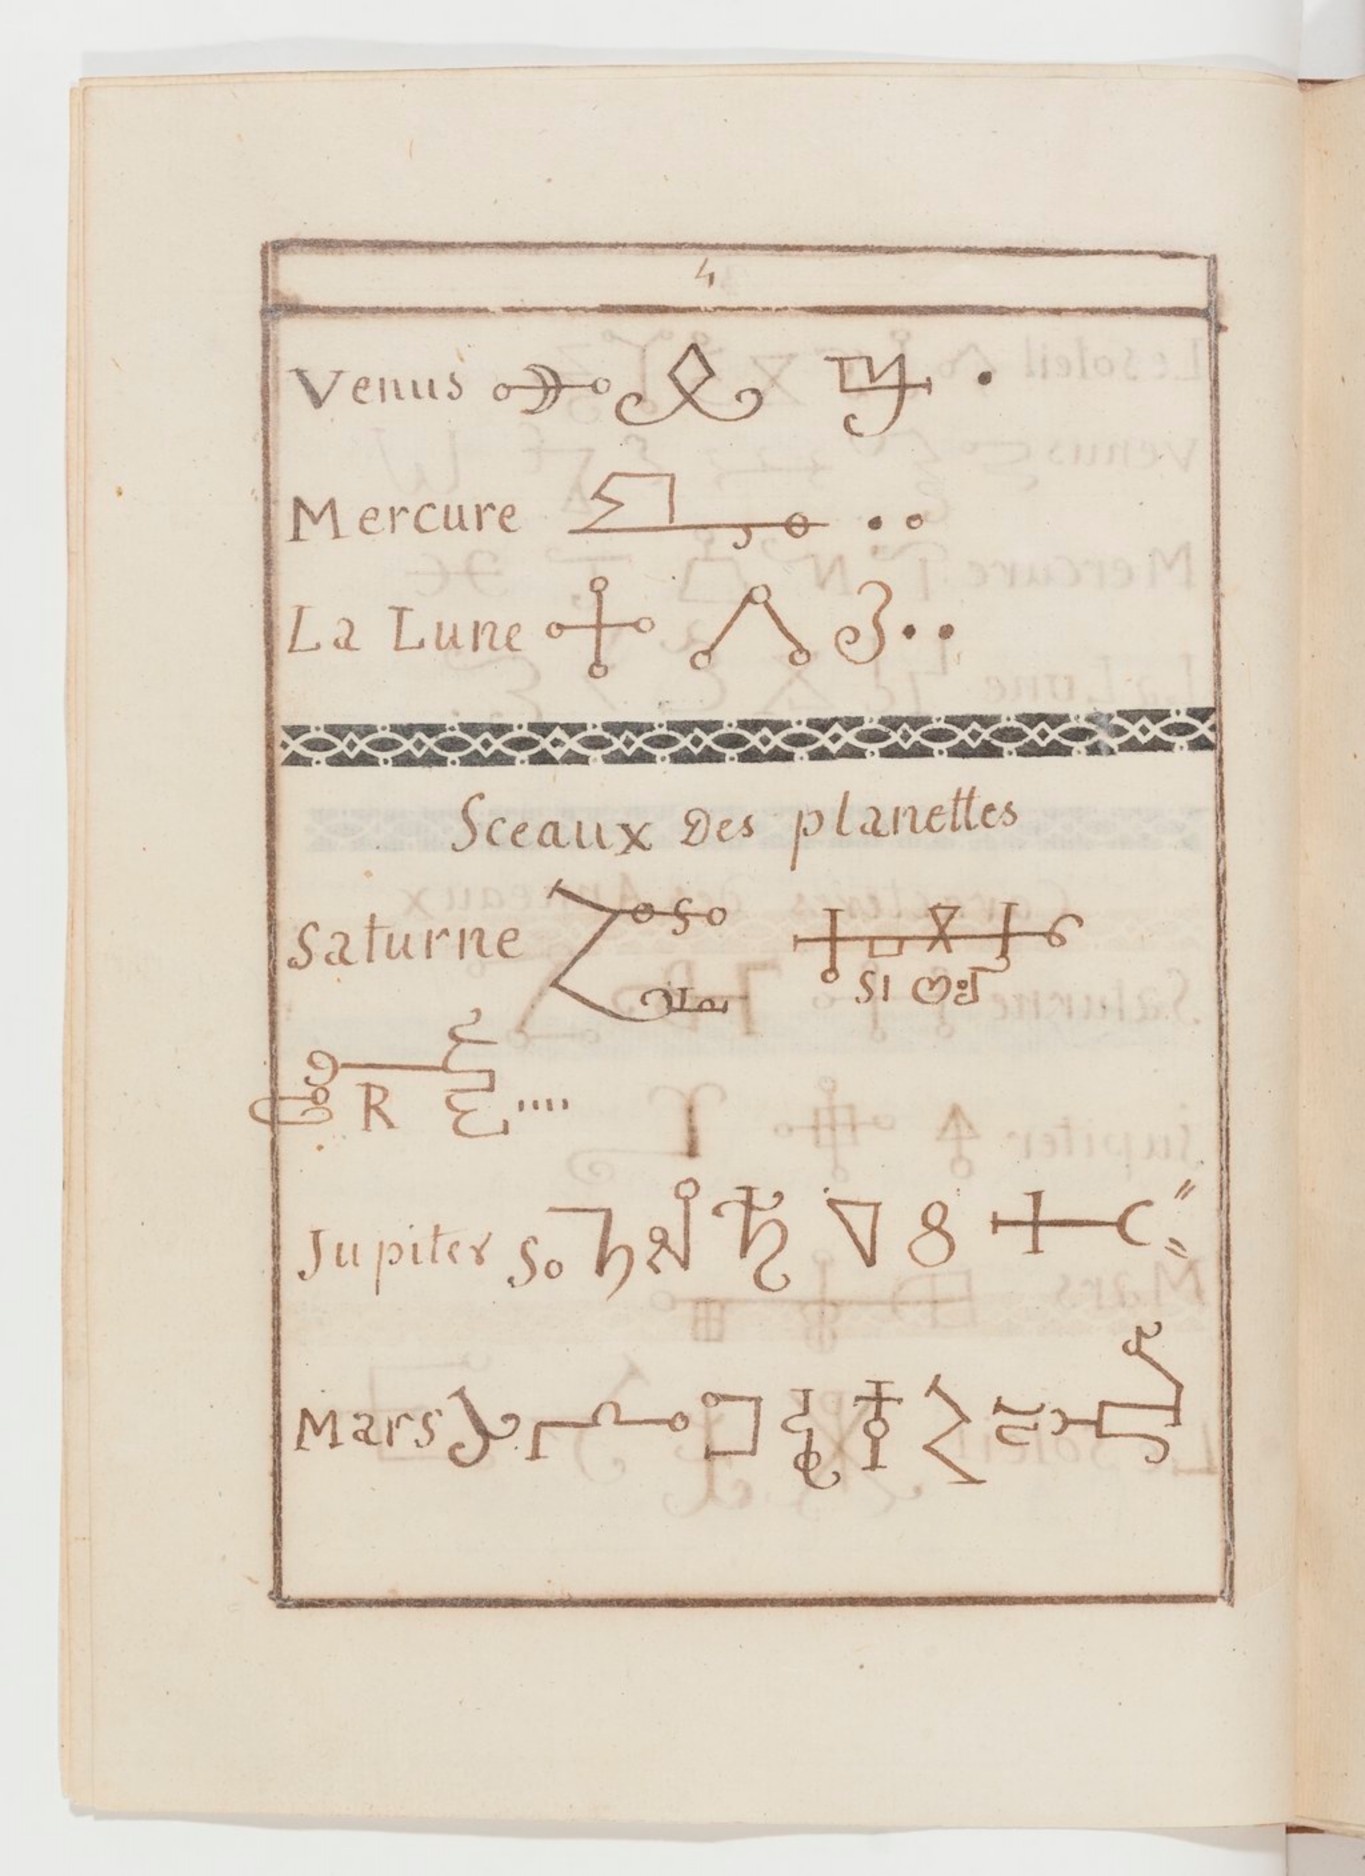 4
Venus
Mercure
La Lune
Sceaux Des planettes
Saturne
R
Jupiter
Mars